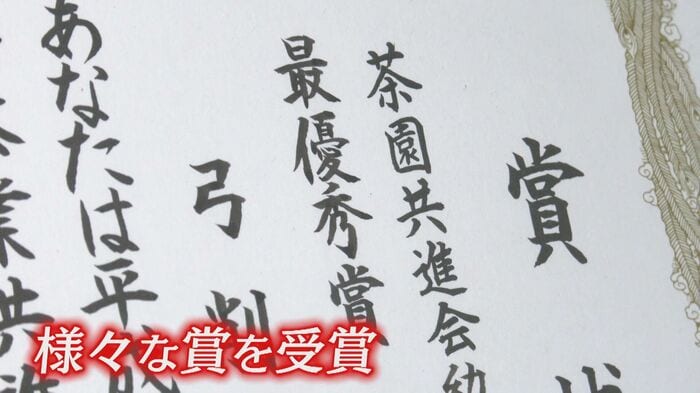 賞
茶園共進会幼
最優秀賞
弓
あなたは平成
業共進
様々な賞を受賞